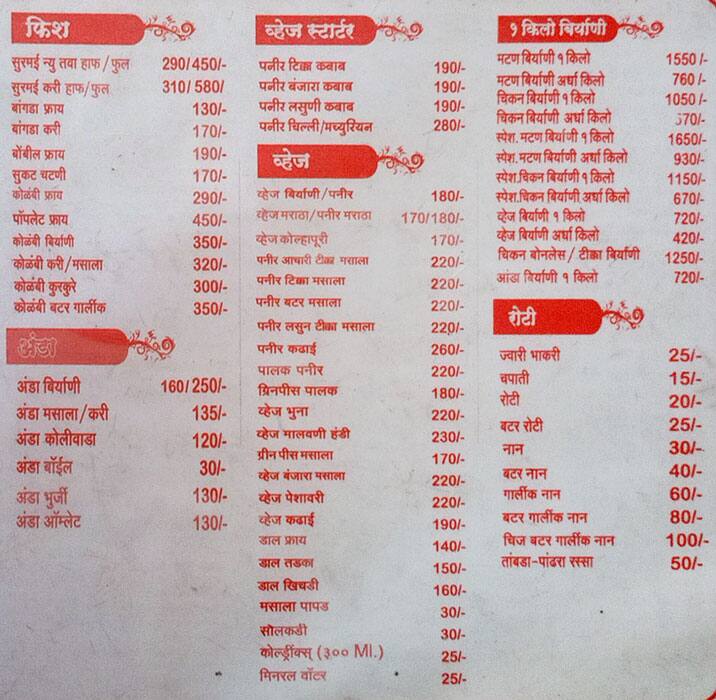 फिश
सुरमई न्यु तवा हाफ/फुल 290/450/-
सुरमई करी हाफ/फुल 310/580/
बांगडा फ्राय 130/-
बांगडा करी 170/-
बोंबील फ्राय 190/-
सुकट चटणी 170/-
कोळंबी फ्राय 290/-
पॉपलेट फ्राय 450/-
कोळंबी बिर्याणी 350/-
कोळंबी करी/मसाला 320/-
कोळंबी कुरकुरे 300/-
कोळंबी बटर गार्लीक 350/-
अंडा
अंडा बिर्याणी 160/250/-
अंडा मसाला/करी 135/-
अंडा कोलीवाडा 120/-
अंडा बॉईल 30/-
अंडा भुर्जी 130/-
अंडा ऑम्लेट 130/-
व्हेज स्टार्टर
पनीर टिक्का कबाब 190/-
पनीर बंजारा कबाब 190/-
पनीर लसुणी कबाब 190/-
पनीर चिल्ली/मच्युरियन 280/-
व्हेज
व्हेज बिर्याणी/पनीर 180/-
व्हेज मराठा/पनीर मराठा 170/180/-
व्हेज कोल्हापूरी 170/-
पनीर आचारी टीक्का मसाला 220/-
पनीर टिक्का मसाला 220/-
पनीर बटर मसाला 220/-
पनीर लसुन टीक्का मसाला 220/-
पनीर कढाई 260/-
पालक पनीर 220/-
ग्रिनपीस पालक 180/-
व्हेज भुना 220/-
व्हेज मालवणी हंडी 230/-
ग्रीन पीस मसाला 170/-
व्हेज बंजारा मसाला 220/-
व्हेज पेशावरी 220/-
व्हेज कढाई 190/-
डाल फ्राय 140/-
डाल तडका 150/-
डाल खिचडी 160/-
मसाला पापड 30/-
सोलकडी 30/-
कोल्ड्रींक्स (३०० Ml.) 25/-
मिनरल वॉटर 25/-
१ किलो बिर्याणी
मटण बिर्याणी १ किलो 1550/-
मटण बिर्याणी अर्धा किलो 760/-
चिकन बिर्याणी १ किलो 1050/-
चिकन बिर्याणी अर्धा किलो 570/-
स्पेश. मटण बिर्याणी १ किलो 1650/-
स्पेश. मटण बिर्याणी अर्धा किलो 930/-
स्पेश.चिकन बिर्याणी १ किलो 1150/-
स्पेश.चिकन बिर्याणी अर्धा किलो 670/-
व्हेज बिर्याणी १ किलो 720/-
व्हेज बिर्याणी अर्धा किलो 420/-
चिकन बोनलेस / टीक्का बिर्याणी 1250/-
आंडा बिर्याणी १ किलो 720/-
रोटी
ज्वारी भाकरी 25/-
चपाती 15/-
रोटी 20/-
बटर रोटी 25/-
नान 30/-
बटर नान 40/-
गार्लीक नान 60/-
बटर गार्लीक नान 80/-
चिज बटर गार्लीक नान 100/-
तांबडा-पांढरा रस्सा 50/-